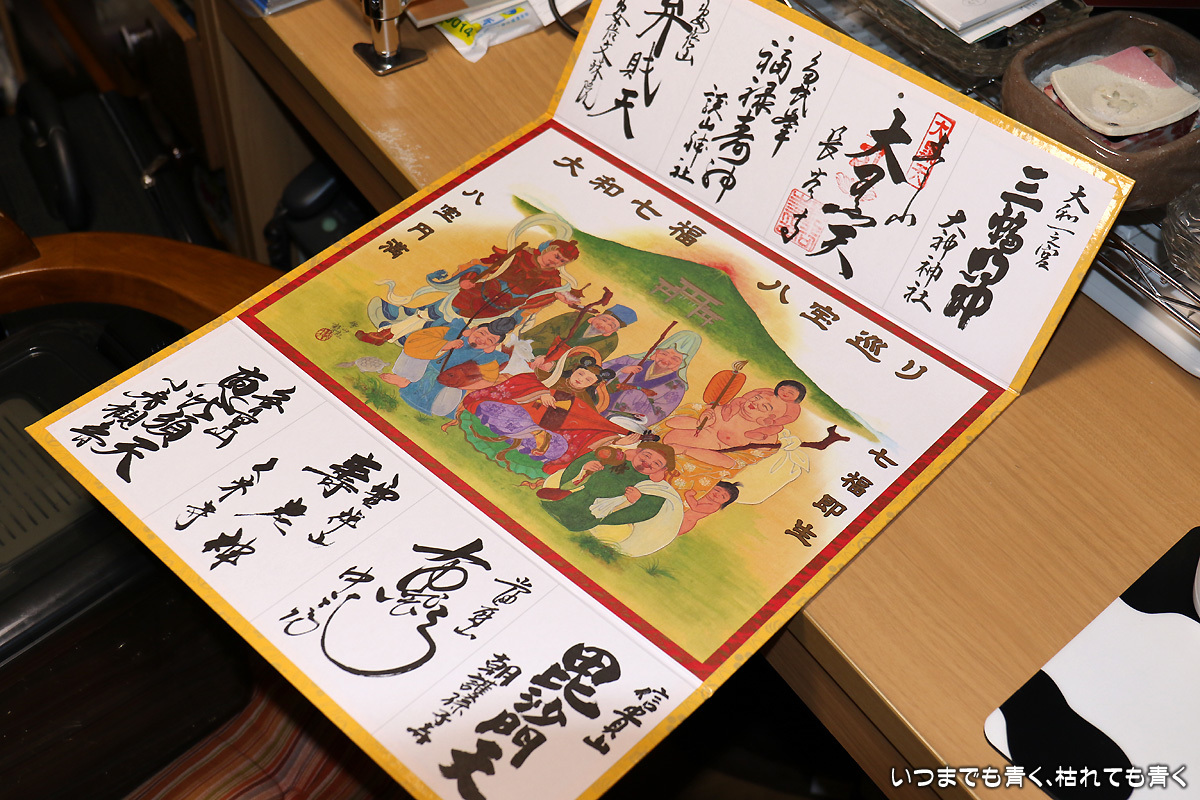 大和一之宮
三輪明神
大神神社
大黒天
長岳寺
多武峯
福禄寿神
談山神社
安倍山
弁財天
安倍文殊院
大和七福八宝巡り
八宝円満
七福即生
信貴山
毘沙門天
朝護孫子寺
當麻山
中之坊
宝珠山
寿老神
久米寺
恵比須天
小房観音
2014
いつまでも青く、枯れても青く